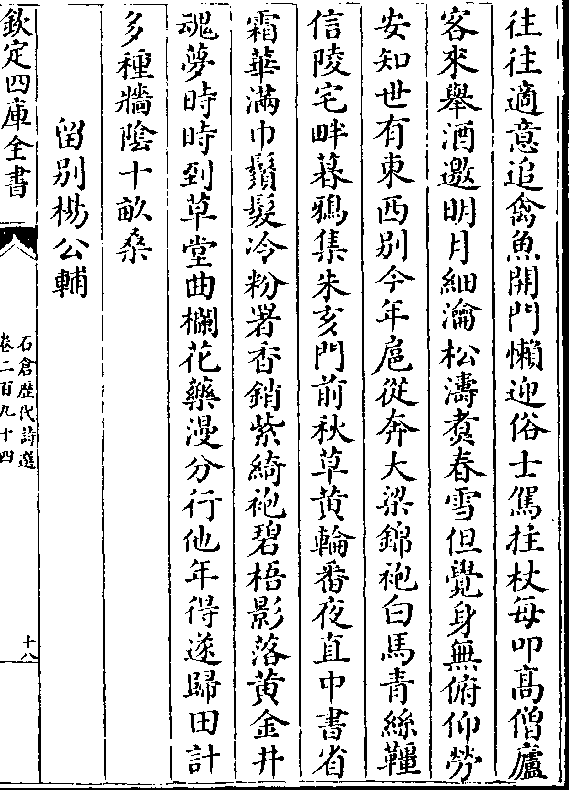 往往適意追禽魚開門懶迎俗士駕拄杖每叩髙僧廬
客來舉酒邀明月細瀹松濤煑春雪但覺身無俯仰勞
安知世有東西别今年扈從奔大梁錦袍白馬青絲韁
信陵宅畔暮鴉集朱亥門前秋草黄輪番夜直中書省
霜華滿巾鬚髮冷粉署香銷紫綺袍碧梧影落黄金井
魂夢時時到草堂曲欄花藥漫分行他年得遂歸田計
多種牆陰十畝桑
留别楊公輔
欽定四庫全書
石倉歴代詩選
卷二百九十四
十八